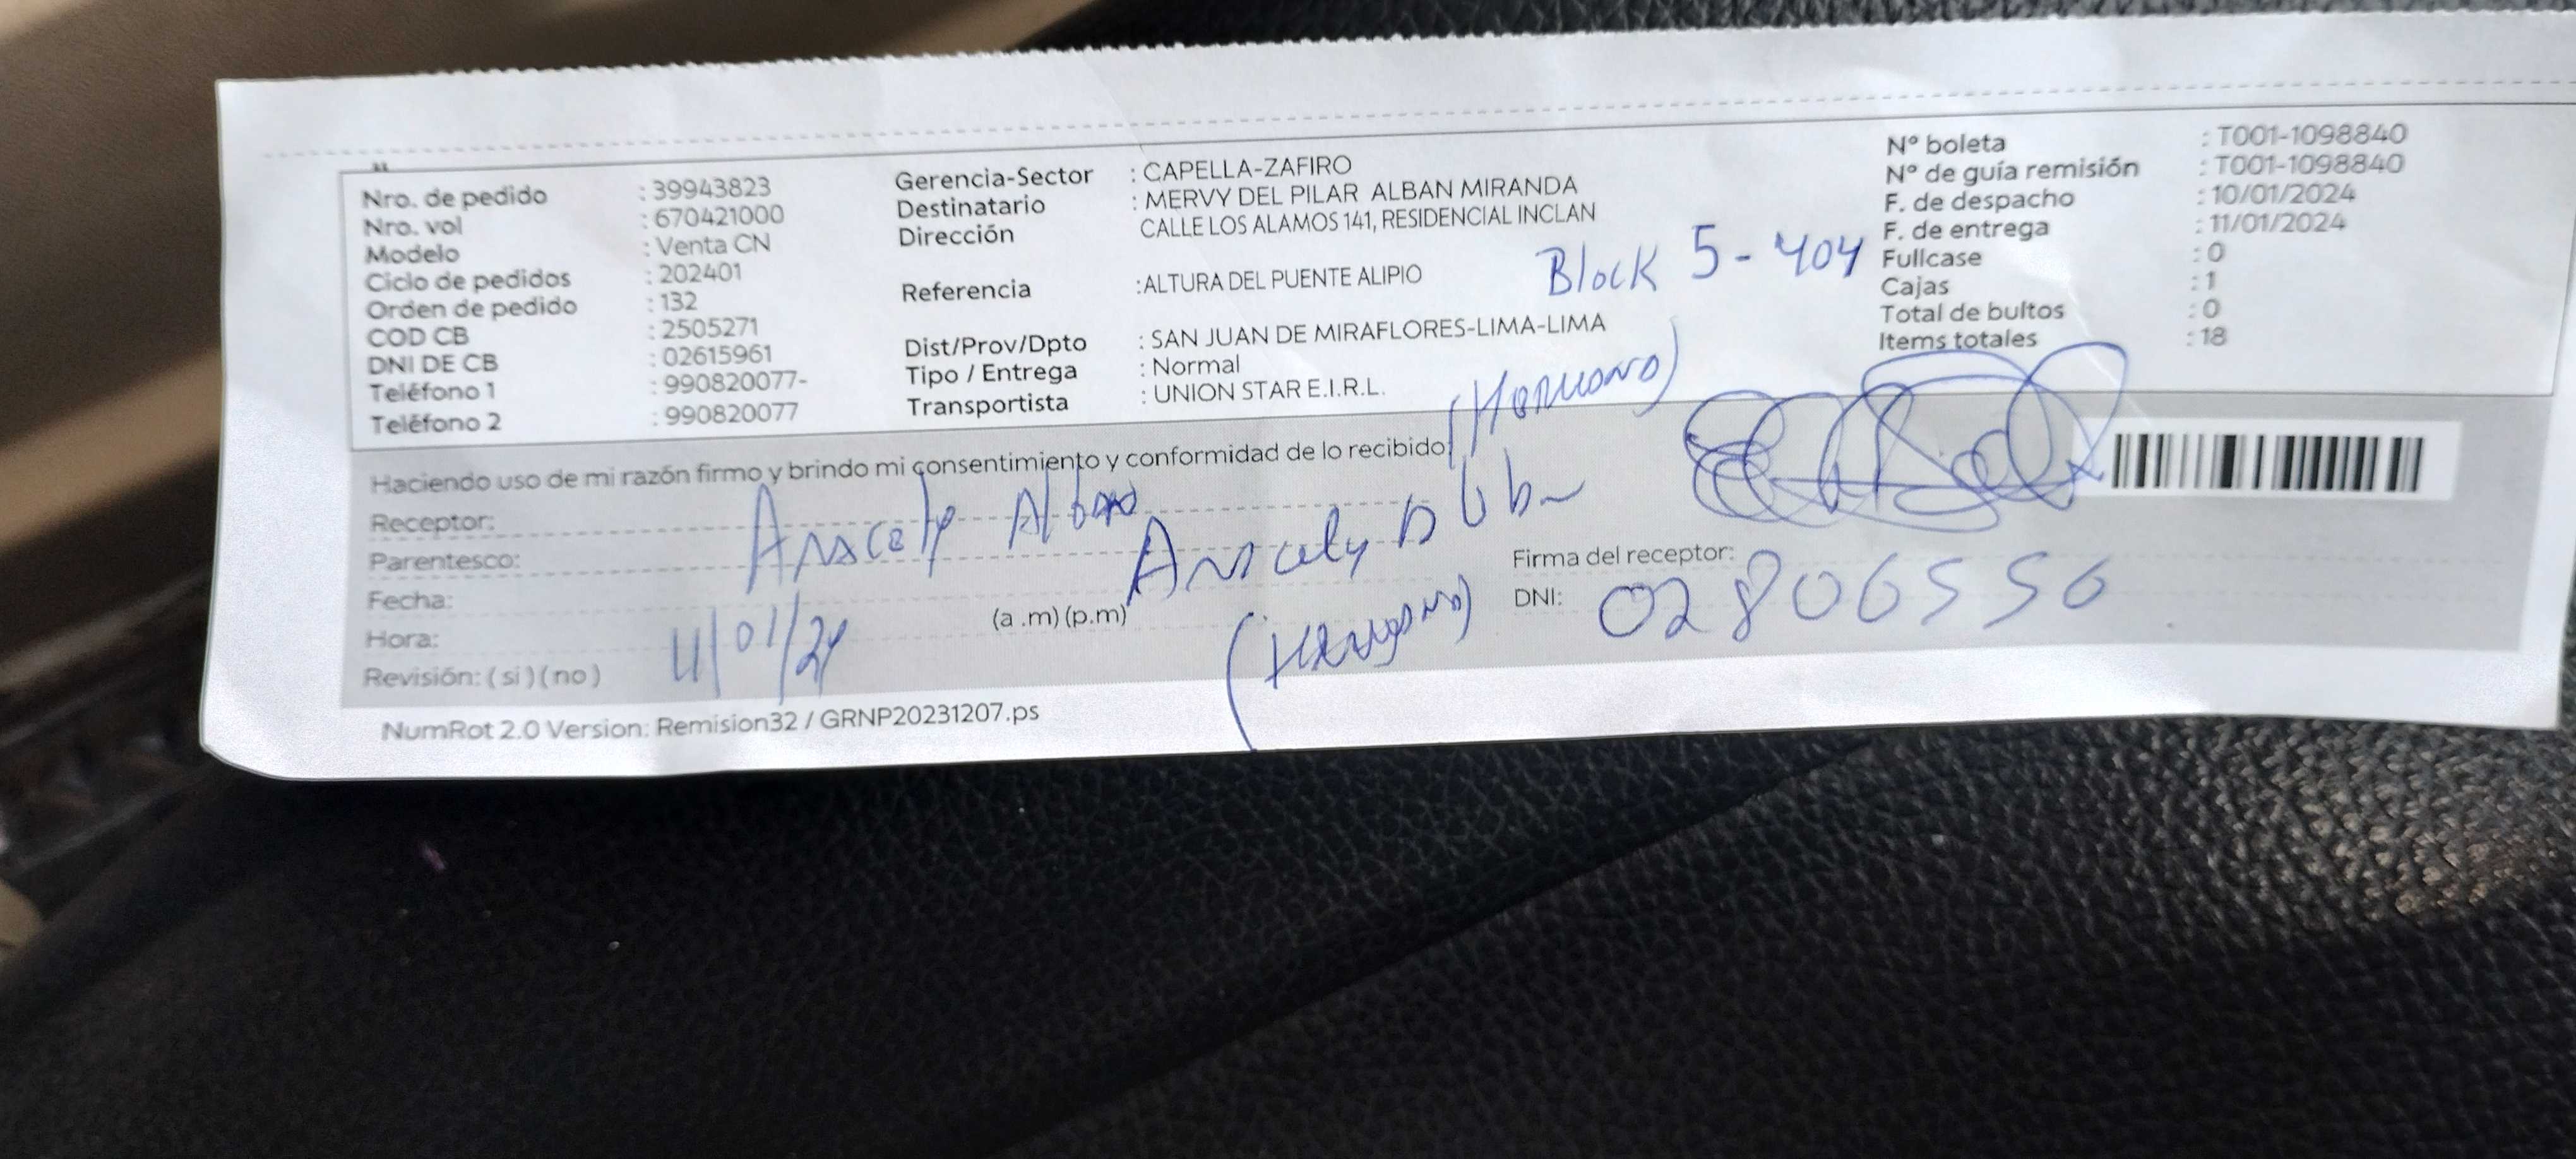 Nro. de pedido : 39943823
Nro. vol : 670421000
Modelo : Venta CN
Ciclo de pedidos : 202401
Orden de pedido : 132
COD CB : 2505271
DNI DE CB : 02615961
Teléfono 1 : 990820077-
Teléfono 2 : 990820077
Gerencia-Sector : CAPELLA-ZAFIRO
Destinatario : MERVY DEL PILAR ALBAN MIRANDA
Dirección CALLE LOS ALAMOS 141, RESIDENCIAL INCLAN
Block 5-404
Referencia :ALTURA DEL PUENTE ALIPIO
Dist/Prov/Dpto : SAN JUAN DE MIRAFLORES-LIMA-LIMA
Tipo / Entrega : Normal
Transportista : UNION STAR E.I.R.L.
N° boleta : T001-1098840
N° de guía remisión : T001-1098840
F. de despacho : 10/01/2024
F. de entrega : 11/01/2024
Fullcase : 0
Cajas : 1
Total de bultos : 0
Items totales : 18
Haciendo uso de mi razón firmo y brindo mi consentimiento y conformidad de lo recibido
(Hermano)
Receptor: Aracely Alban
Parentesco: Aracely
Fecha:
Hora: 11/01/24 (a .m) (p.m)
Revisión: ( si ) ( no )
(Hermano)
Firma del receptor:
DNI: 02806556
NumRot 2.0 Version: Remision32 / GRNP20231207.ps